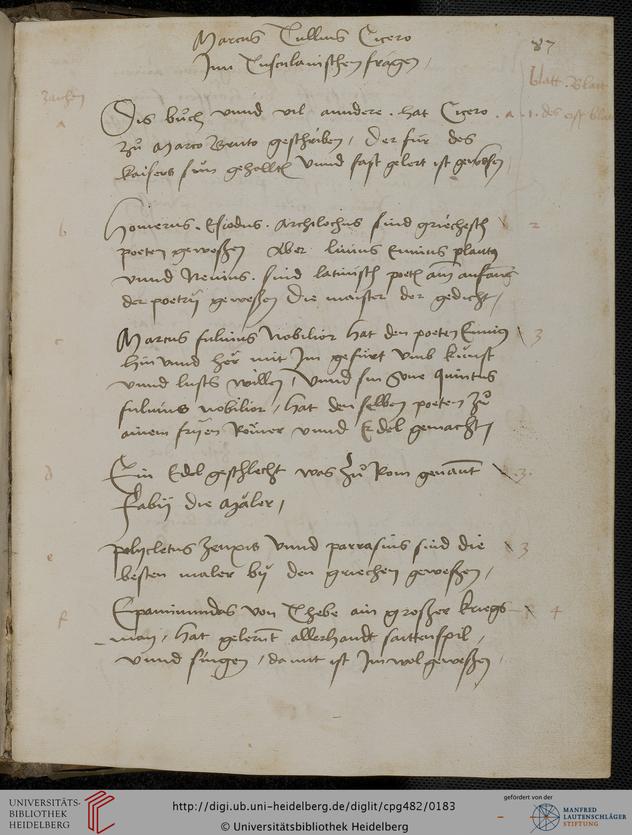 Marcus Tullius Cicero
Inn Tusculanischen fragen,
87
blatt. Blatt
zaichen
a
Dis bůch vnnd vil anndere. hat Cicero. a. 1. des erst blat
zů Marco Bruto geschriben, Der für des
kaisers sun gehalltē vnnd fast gelert ist gewesen,
b
Homerus. Esiodus. Archilochus sind griechesch 2
poeten gewesßen Aber liuius Ennius plautus
vnnd Neuius. sind latinisch poetē am anfang
der poetrij gewesßen Die maister der gedicht,
c
Marcus fuluius Nobilior hat den poeten Ennius 3
hin vnnd her mit Im gefürt vmb kunst
vnnd lusts willen, vnnd sin Sone Quintus
fuluius nobilior, hat den selben poeten zů
ainem fryen Römer vnnd Edel gemacht,
d
Ein Edel geschlecht was zů Rom genannt .3.
Fabij die Maler,
e
polycletus zeuxis vnnd parrasius sind die 3
besten maler by den griechen gewesßen,
f
Epaminundas von Thebe ain großer kriegs 4
man, hat gelernt allerhandt saittenspil,
vnnd singen, damit ist Im wol gewesßen,
UNIVERSITÄTS-
BIBLIOTHEK
HEIDELBERG
http://digi.ub.uni-heidelberg.de/diglit/cpg482/0183
© Universitätsbibliothek Heidelberg
gefördert von der
MANFRED
LAUTENSCHLÄGER
STIFTUNG